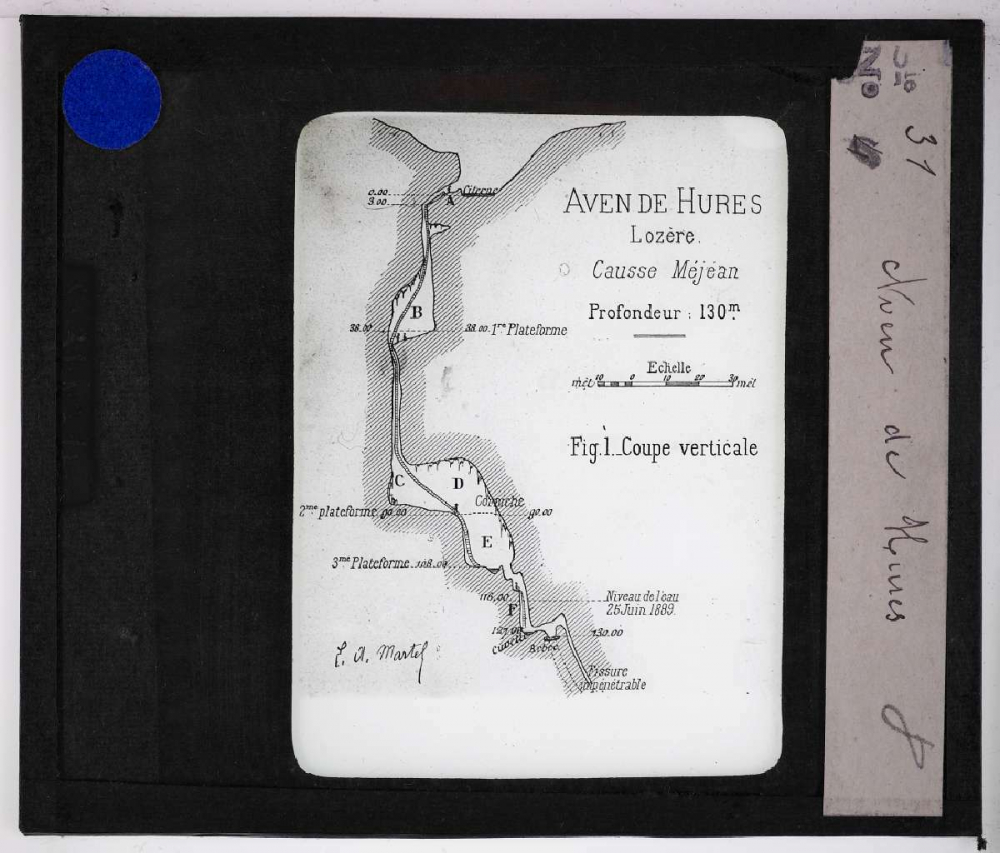 AVEN DE HURES
Lozère.
Causse Méjéan
Profondeur : 130m.
Echelle
mèt 10 0 10 20 30 mèt
Fig. 1._Coupe verticale
0.00
3.00
Citerne
A
B
38.00
38.00. 1re Plateforme
C
D
Corniche
2me plateforme 90.00
90.00
E
3me Plateforme
116.00
Niveau de l'eau
25 Juin 1889.
F
130.00
Fissure
impénétrable
E. A. Martel
No
31
Aven de Hures